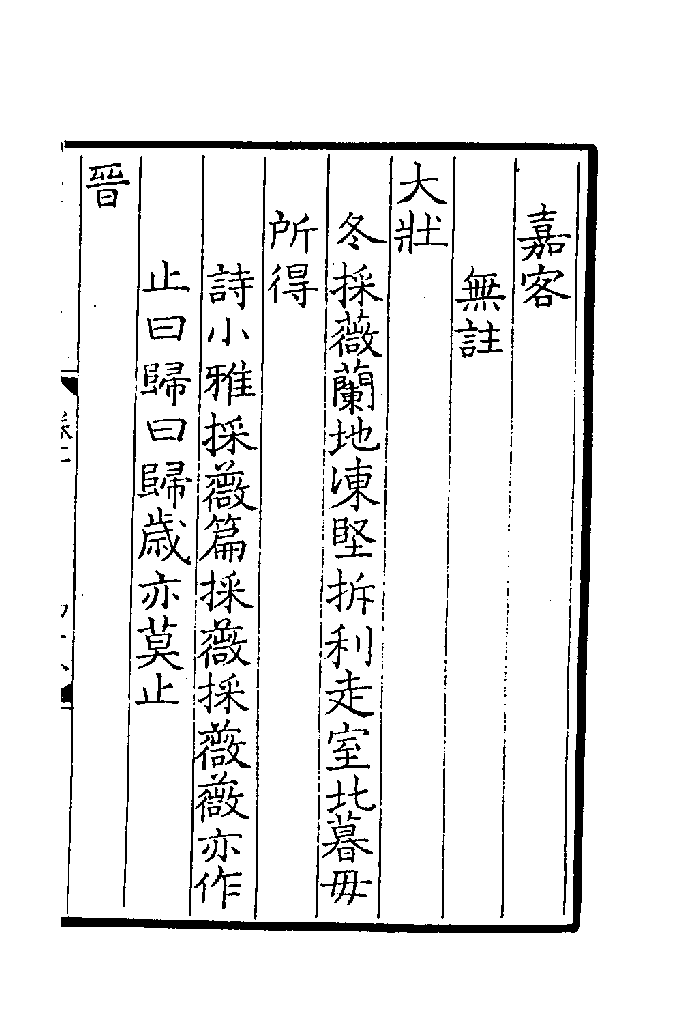 嘉客
無註
大壯
冬採薇蘭地凍堅拆利走室北暮毋
所得
詩小雅採薇篇採薇採薇薇亦作
止曰歸曰歸歲亦莫止
晉